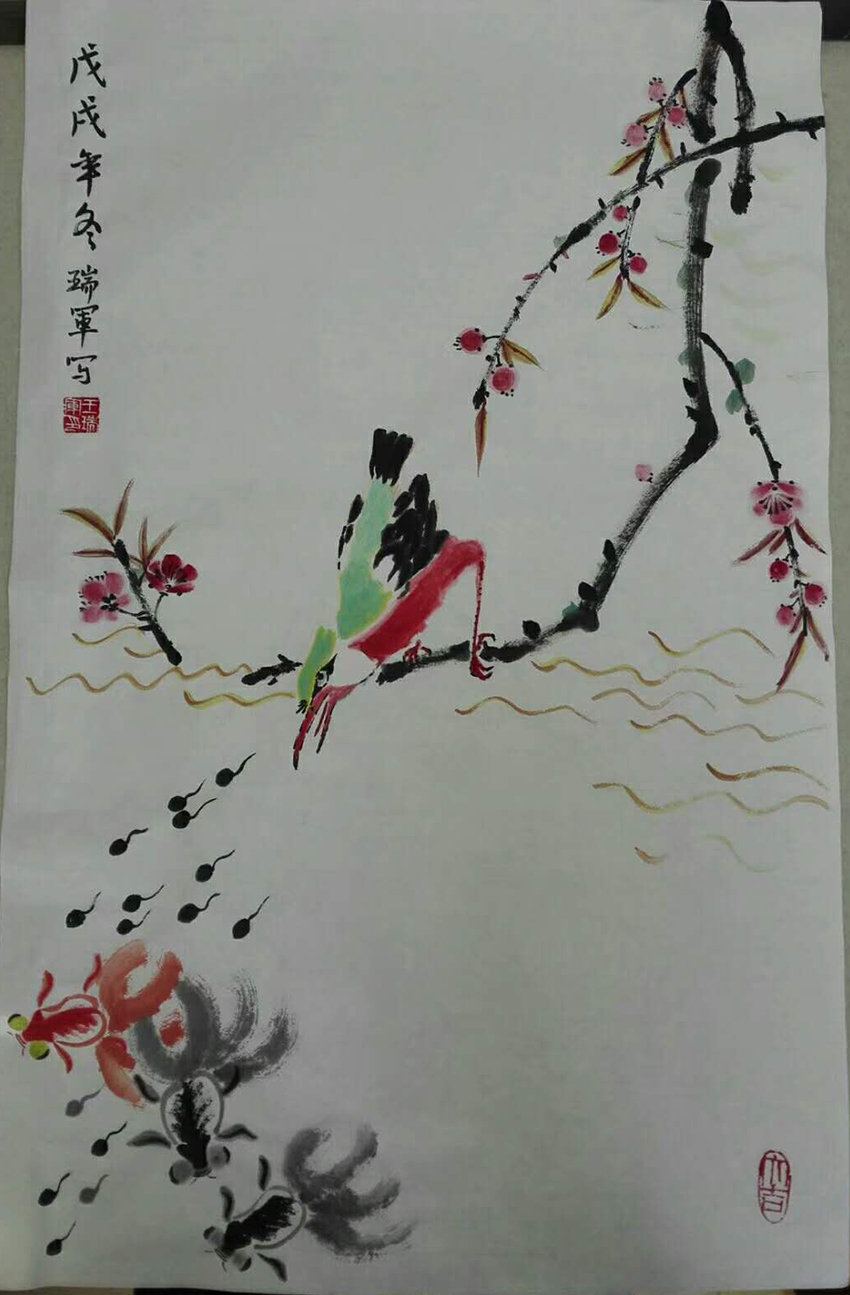 戊戌年冬 瑞軍写
王瑞軍印